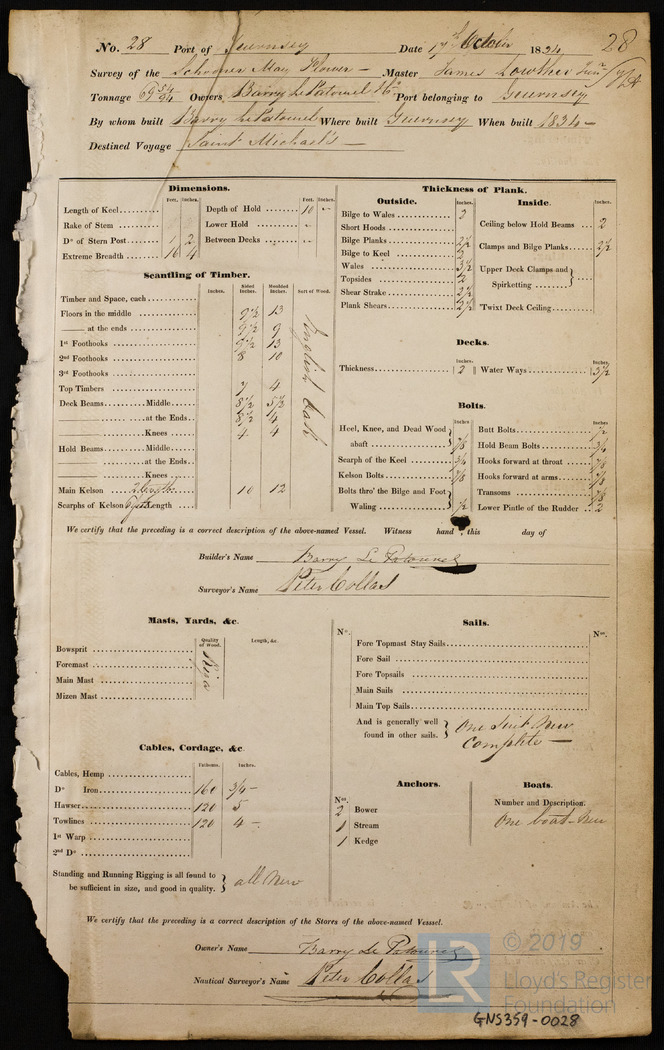 No. 28 Port of Guernsey Date 17th October 1834 28
Survey of the Schooner May Flower — Master James Lowther
Tonnage 69 54/94 Owners Barry Le Patourel & Co Port belonging to Guernsey
By whom built Barry Le Patourel Where built Guernsey When built 1834 —
Destined Voyage Saint Michael's —
Dimensions.
Feet. Inches.
Feet. Inches.
Length of Keel
Depth of Hold 10 "
Rake of Stem
Lower Hold "
Do of Stern Post 2
Between Decks "
Extreme Breadth 16 4
Scantling of Timber.
Inches. Sided Inches. Moulded Inches. Sort of Wood.
Timber and Space, each
Floors in the middle 9½ 13
—— at the ends 9½ 9
1st Foothooks 9½ 13
2nd Foothooks 8 10
3rd Foothooks
Top Timbers 7 4
Deck Beams Middle 8½ 5½
—— at the Ends 8½ 4
—— Knees 4 4
Hold Beams Middle
—— at the Ends
—— Knees
Main Kelson 2 lengths 10 12
Scarphs of Kelson Length
English Oak
Thickness of Plank.
Outside. Inches.
Inside. Inches.
Bilge to Wales 2
Short Hoods
Bilge Planks 2½
Bilge to Keel 2
Wales 3½
Topsides 2
Shear Strake 2½
Plank Shears 2½
Ceiling below Hold Beams 2
Clamps and Bilge Planks 2½
Upper Deck Clamps and Spirketting
Twixt Deck Ceiling
Decks.
Inches. Inches.
Thickness 2 Water Ways 3½
Bolts.
Inches Inches
Heel, Knee, and Dead Wood abaft 7/8
Scarph of the Keel 3/4
Kelson Bolts 7/8
Bolts thro' the Bilge and Foot Waling ½
Butt Bolts ½
Hold Beam Bolts 3/4
Hooks forward at throat 7/8
Hooks forward at arms 7/8
Transoms 7/8
Lower Pintle of the Rudder 2
We certify that the preceding is a correct description of the above-named Vessel. Witness hand this day of
Builder's Name Barry Le Patourel
Surveyor's Name Peter Collas
Masts, Yards, &c.
Quality of Wood. Length, &c.
Bowsprit
Foremast
Main Mast
Mizen Mast
Riga
Sails.
No. No.
Fore Topmast Stay Sails
Fore Sail
Fore Topsails
Main Sails
Main Top Sails
And is generally well found in other sails. One Suit New
Complete —
Cables, Cordage, &c.
Fathoms. Inches.
Cables, Hemp
Do Iron 160 3/4 —
Hawser 120 5
Towlines 120 4 —
1st Warp
2nd Do
Standing and Running Rigging is all found to be sufficient in size, and good in quality. all New
Anchors.
No.
2 Bower
1 Stream
1 Kedge
Boats.
Number and Description.
One boat — New
We certify that the preceding is a correct description of the Stores of the above-named Vesssel.
Owner's Name Barry Le Patourel
Nautical Surveyor's Name Peter Collas
LR
© 2019
Lloyd's Register
Foundation
GNS359-0028